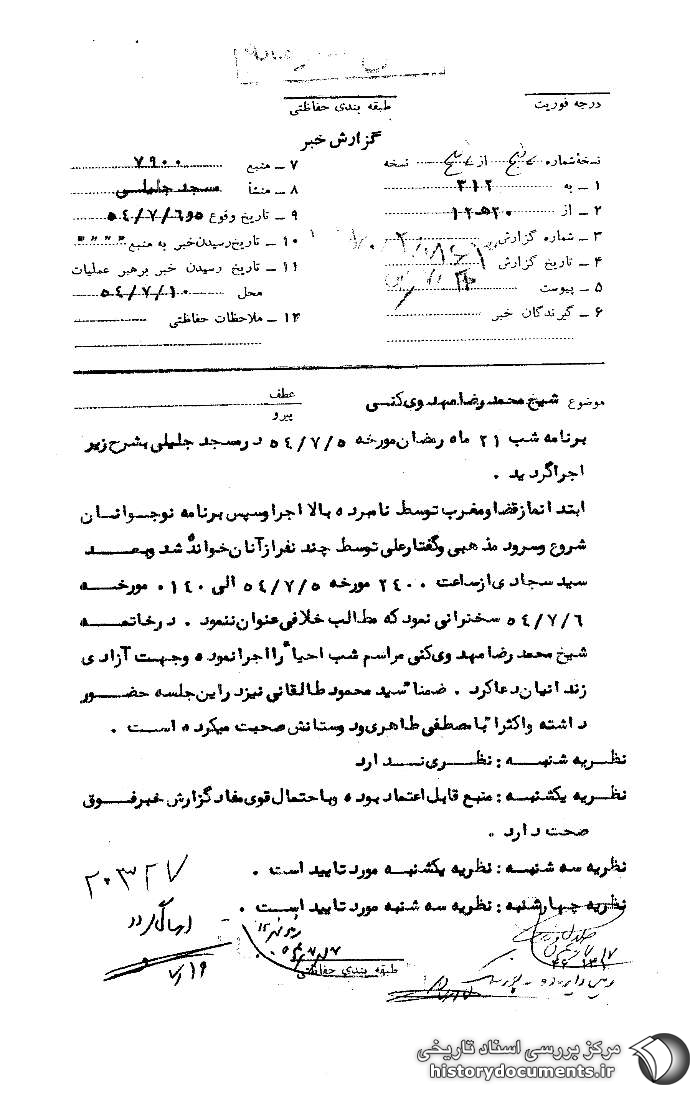 درجه فوریت
طبقه بندی حفاظتی
گزارش خبر
نسخهٔ شماره از نسخه
۱ ـ به ۳۱۲
۲ ـ از ۱۲ﻫ۲۰
۳ ـ شماره گزارش
۴ ـ تاریخ گزارش
۵ ـ پیوست
۶ ـ گیرندگان خبر
۷ ـ منبع ۷۹۰۰
۸ ـ منشأ مسجد جلیلی
۹ ـ تاریخ وقوع ۵و۵۴/۷/۶
۱۰ ـ تاریخ رسیدن خبر به منبع " " " "
۱۱ ـ تاریخ رسیدن خبر برهبر عملیات
محل ۵۴/۷/۱۰
۱۲ ـ ملاحظات حفاظتی
موضوع شیخ محمد رضا مهدوی کنی
عطف
پیرو
برنامه شب ۲۱ ماه رمضان مورخه ۵۴/۷/۵ در مسجد جلیلی بشرح زیر
اجرا گردید .
ابتدا نماز قضا و مغرب توسط نامبرده بالا اجرا و سپس برنامه نوجوانان
شروع و سرود مذهبی و گفتار علی توسط چند نفر از آنان خوانده شد و بعد
سید سجادی از ساعت ۲۴۰۰ مورخه ۵۴/۷/۵ الی ۰۱۴۰ مورخه
۵۴/۷/۶ سخنرانی نمود که مطالب خلافی عنوان ننمود . در خاتمه
شیخ محمد رضا مهدوی کنی مراسم شب احیاء را اجرا نموده و جهت آزادی
زندانیان دعا کرد . ضمناً سید محمود طالقانی نیز در این جلسه حضور
داشته و اکثراً با مصطفی طاهری و دوستانش صحبت میکرده است .
نظریه شنبه : نظری ندارد
نظریه یکشنبه : منبع قابل اعتماد بوده و با احتمال قوی مفاد گزارش خبر فوق
صحت دارد .
نظریه سه شنبه : نظریه یکشنبه مورد تایید است .
نظریه چهارشنبه : نظریه سه شنبه مورد تایید است .
۲۰۳۲۷
۷/۱۹
طبقه بندی حفاظتی
مرکز بررسی اسناد تاریخی
historydocuments.ir